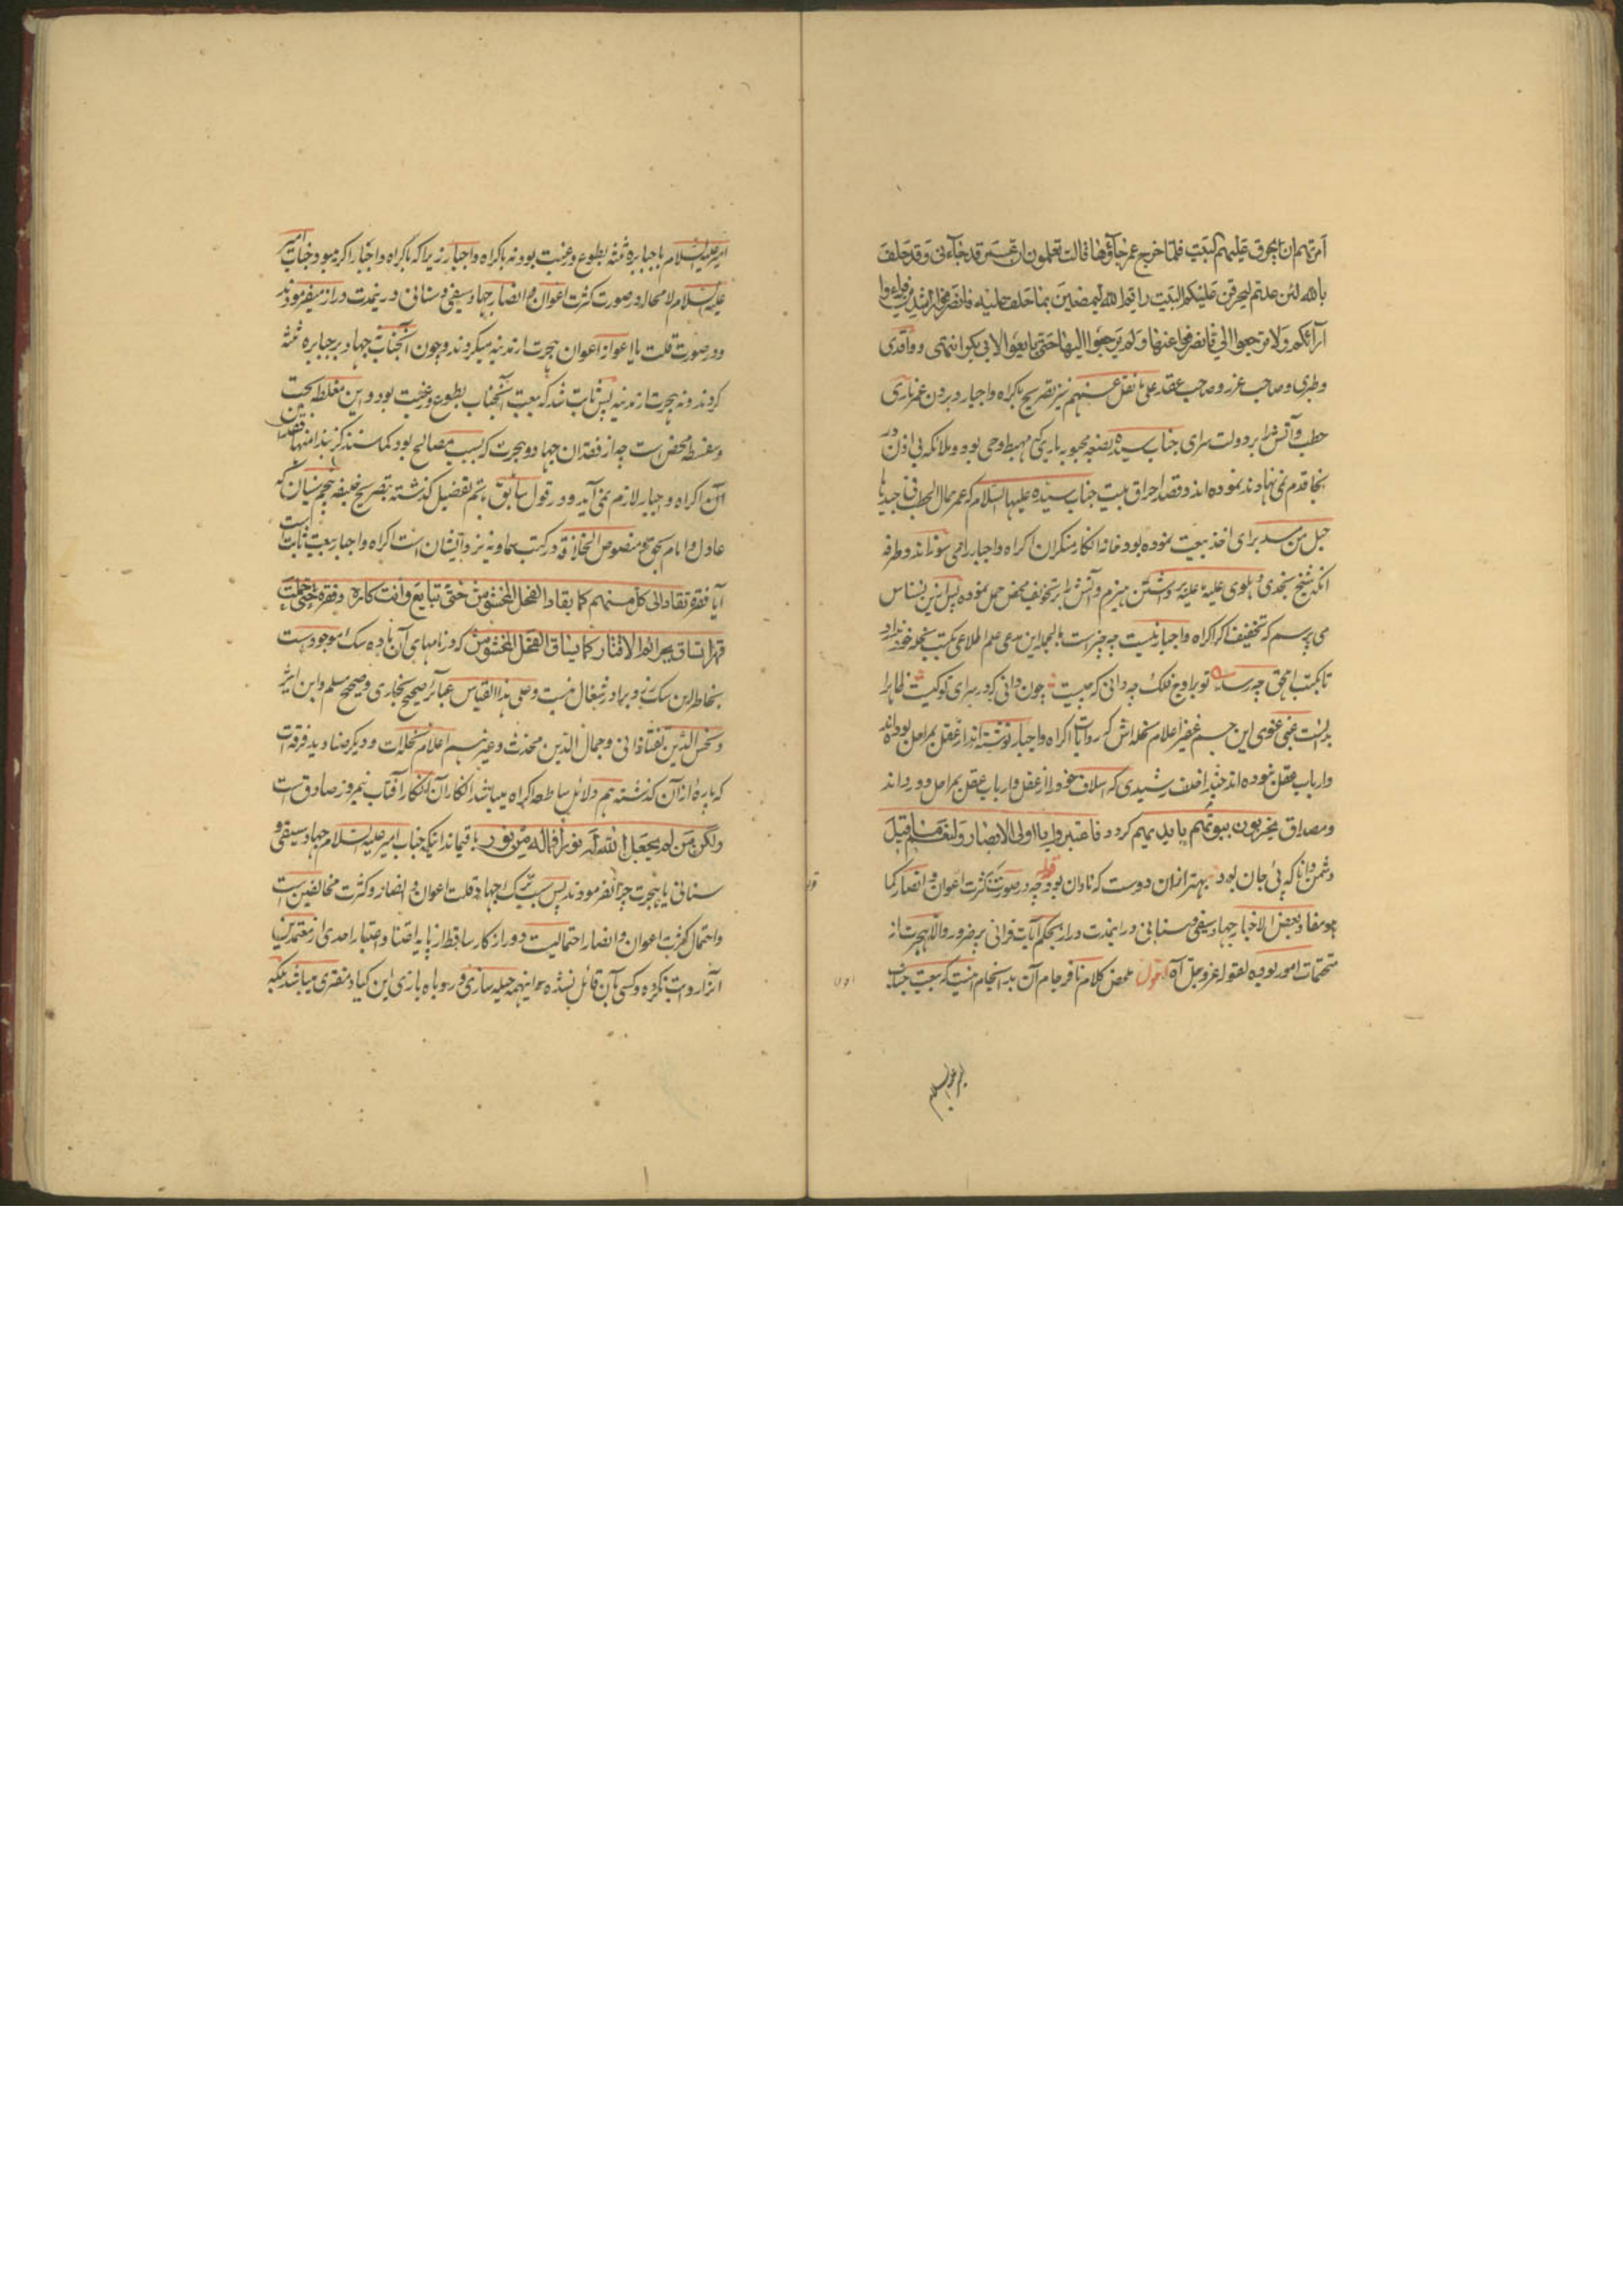 امرتهم ان یحرق علیهم البیت فلما خرج عمر جاؤها قالت تعلمون ان عمر قد جاءنی و قد حلف
بالله لئن عدتم لیحرقن علیکم البیت و ایم الله لیمضین بما حلف علیه فانصرفوا راشدین فراوا
ارائکم ولا ترجعوا الی فانصرفوا عنها و لم یرجعوا الیها حتی بایعوا لابی بکر انتهی و واقدی
و طبری و صاحب غرر و صاحب عقد علی ما نقل عنهم نیز تصریح باکراه و اجبار و بردن عمر ناری
حطب و آتش را بر دولت سرای جناب سیده بضعه محبوبه باری که مهبط وحی بود و ملائکه بی اذن در
آنجا قدم نمی نهادند نموده اند و قصد احراق بیت جناب سیده علیها السلام که عمر حمال الحطب فی جیدها
حبل من مسد برای اخذ بیعت نموده بود خانه انکار منکران اکراه و اجبار را می سوزاند و طرفه
آنکه شیخ نجدی دهلوی علیه ما علیه برداشتن هیزم و آتش را بر تخویف محض حمل نموده پس ازین نسناس
می پرسم که تخفیف اگر اکراه و اجبار نیست چه چیز است بالجمله این مدعی علم اطلاعی بکتب نحله خود ندارد
تا بکتب اهل حق چه رسد تو بر اوج فلک چه دانی که چیست چون دانی که در سرای تو کیست ظاهرا
بدانست غبی غوی این جم غفیر اعلام نحله اش که روایات اکراه و اجبار نوشته اند از عقل بمراحل بوده اند
و ارباب عقل نبوده اند حبذا خلف رشیدی که اسلاف خود را از عقل و ارباب عقل بمراحل دور داند
و مصداق یخربون بیوتهم بایدیهم گردد فاعتبروا یا اولی الابصار و لنعم ما قیل
دشمن دانا که پی جان بود بهتر ازان دوست که نادان بود قوله چه در صورت کثرت اعوان و انصار کما
هو مفاد بعض الاخبار جهاد سیفی و سنانی در اینمدت دراز بحکم آیات قرانی پر ضرور و الا هجرت از
متحتمات امور بوده لقوله عز و جل آه اقول محض کلام نافرجام آن بد انجام اینست که بیعت جناب
امیر علیه السلام
امیر علیه السلام با جبابره ثلثه بطوع و رغبت بود نه باکراه و اجبار زیرا که باکراه و اجبار اگر میبود جناب امیر
علیه السلام لا محاله در صورت کثرت اعوان و انصار جهاد سیفی و سنانی در ینمدت دراز میفرمودند
و در صورت قلت یا اعواز اعوان هجرت از مدینه میکردند و چون آنجناب جهاد بر جبابره ثلثه
کردند و نه هجرت از مدینه پس ثابت شد که بیعت آنجناب بطوع و رغبت بود و این مغلطه بحت
و سفسطه محض است چه از فقدان جهاد و هجرت که بسبب مصالح بود کما سنذکر نبذا منها فقدان
آن اکراه و اجبار لازم نمی آید و در قول سابق بتفصیل گذشته بتصریح خلیفه پنجم سنیان که
عادل و امام بحق و منصوص الخلافة در کتب سماویه نزد ایشان است اکراه و اجبار بیعت ثابت است
آیا فقره تقاد الی کل منهم کما یقاد الفحل المخشوش حتی تبایع و انت کاره و فقره حتی حملت
قهرا تساق بحزائم الاقتار کما یساق الفحل المخشوش که در نامهای آن باده سگ موجود است
بخاطر این سگ زرد برادر شغال نیست و علی هذا القیاس عبائر صحیح بخاری و صحیح مسلم و ابن اثیر
و شمس الدین تفتازانی و جمال الدین محدث و غیرهم اعلام نحله ات و دیگر صنادید فرقه ات
که پاره ازان گذشته هم دلائل ساطعه اکراه میباشد انکار آن انکار آفتاب نیمروز صادقست
ولکن من لم یجعل الله له نورا فماله من نور باقیماند اینکه جناب امیر علیه السلام جهاد سیفی و
سنانی یا هجرت چرا نفرمودند پس سبب ترک جهاد قلت اعوان و انصار و کثرت مخالفین است
و احتمال کثرت اعوان و انصار احتمالیست دور از کار ساقط از پایه اعتنا و اعتبار احدی از معتمدین
آنرا روایت نکرده و کسی بآن قائل نشده سوا اینهمه حیله سازی و روباه بازی این کیاد مفتری میباشد بلکه